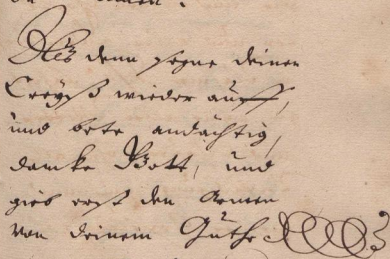 Alß denn segne deinen
Creyß wieder auff,
und bete andächtig,
dancke Gott, und
gieb erst den Armen
von deinem Guthe